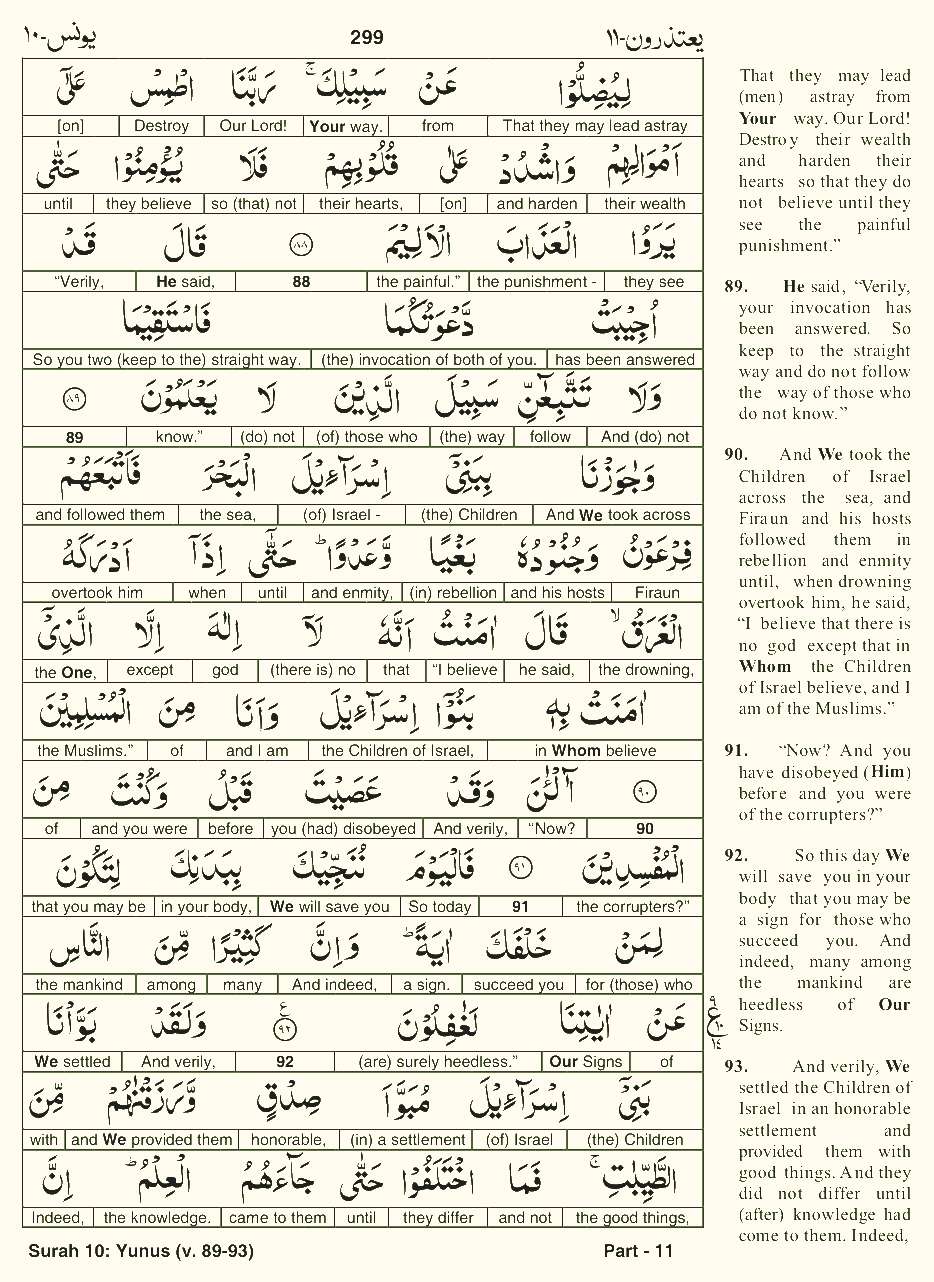 يعتذرون-١١ 299 يونس-١٠
لِيُضِلُّوْا عَنْ سَبِيْلِكَ ۚ رَبَّنَا اطْمِسْ عَلٰٓى
That they may lead astray from Your way. Our Lord! Destroy [on]
اَمْوَالِهِمْ وَاشْدُدْ عَلٰى قُلُوْبِهِمْ فَلَا يُؤْمِنُوْا حَتّٰى
their wealth and harden [on] their hearts, so (that) not they believe until
يَرَوُا الْعَذَابَ الْاَلِيْمَ ٨٨ قَالَ قَدْ
they see the punishment - the painful.” 88 He said, “Verily,
اُجِيْبَتْ دَّعْوَتُكُمَا فَاسْتَقِيْمَا
has been answered (the) invocation of both of you. So you two (keep to the) straight way.
وَلَا تَتَّبِعٰٓنِّ سَبِيْلَ الَّذِيْنَ لَا يَعْلَمُوْنَ ٨٩
And (do) not follow (the) way (of) those who (do) not know.” 89
وَجٰوَزْنَا بِبَنِيْٓ اِسْرَآءِيْلَ الْبَحْرَ فَاَتْبَعَهُمْ
And We took across (the) Children (of) Israel - the sea, and followed them
فِرْعَوْنُ وَجُنُوْدُهٗ بَغْيًا وَّعَدْوًا ؕ حَتّٰٓى اِذَآ اَدْرَكَهُ
Firaun and his hosts (in) rebellion and enmity, until when overtook him
الْغَرَقُ ۙ قَالَ اٰمَنْتُ اَنَّهٗ لَآ اِلٰهَ اِلَّا الَّذِيْٓ
the drowning, he said, “I believe that (there is) no god except the One,
اٰمَنَتْ بِهٖ بَنُوْٓا اِسْرَآءِيْلَ وَاَنَا مِنَ الْمُسْلِمِيْنَ
in Whom believe the Children of Israel, and I am of the Muslims.”
٩٠ آٰلْـٰٔنَ وَقَدْ عَصَيْتَ قَبْلُ وَكُنْتَ مِنَ
90 “Now? And verily, you (had) disobeyed before and you were of
الْمُفْسِدِيْنَ ٩١ فَالْيَوْمَ نُنَجِّيْكَ بِبَدَنِكَ لِتَكُوْنَ
the corrupters?” 91 So today We will save you in your body, that you may be
لِمَنْ خَلْفَكَ اٰيَةً ؕ وَاِنَّ كَثِيْرًا مِّنَ النَّاسِ
for (those) who succeed you a sign. And indeed, many among the mankind
عَنْ اٰيٰتِنَا لَغٰفِلُوْنَ ٩٢ ع وَلَقَدْ بَوَّاْنَا
of Our Signs (are) surely heedless.” 92 And verily, We settled
بَنِيْٓ اِسْرَآءِيْلَ مُبَوَّاَ صِدْقٍ وَّرَزَقْنٰهُمْ مِّنَ
(the) Children (of) Israel (in) a settlement honorable, and We provided them with
الطَّيِّبٰتِ ۚ فَمَا اخْتَلَفُوْا حَتّٰى جَآءَهُمُ الْعِلْمُ ؕ اِنَّ
the good things, and not they differ until came to them the knowledge. Indeed,
٩
ع ١٠
١٤
That they may lead
(men) astray from
Your way. Our Lord!
Destroy their wealth
and harden their
hearts so that they do
not believe until they
see the painful
punishment.”
89. He said, “Verily,
your invocation has
been answered. So
keep to the straight
way and do not follow
the way of those who
do not know.”
90. And We took the
Children of Israel
across the sea, and
Firaun and his hosts
followed them in
rebellion and enmity
until, when drowning
overtook him, he said,
“I believe that there is
no god except that in
Whom the Children
of Israel believe, and I
am of the Muslims.”
91. “Now? And you
have disobeyed (Him)
before and you were
of the corrupters?”
92. So this day We
will save you in your
body that you may be
a sign for those who
succeed you. And
indeed, many among
the mankind are
heedless of Our
Signs.
93. And verily, We
settled the Children of
Israel in an honorable
settlement and
provided them with
good things. And they
did not differ until
(after) knowledge had
come to them. Indeed,
Surah 10: Yunus (v. 89-93) Part - 11